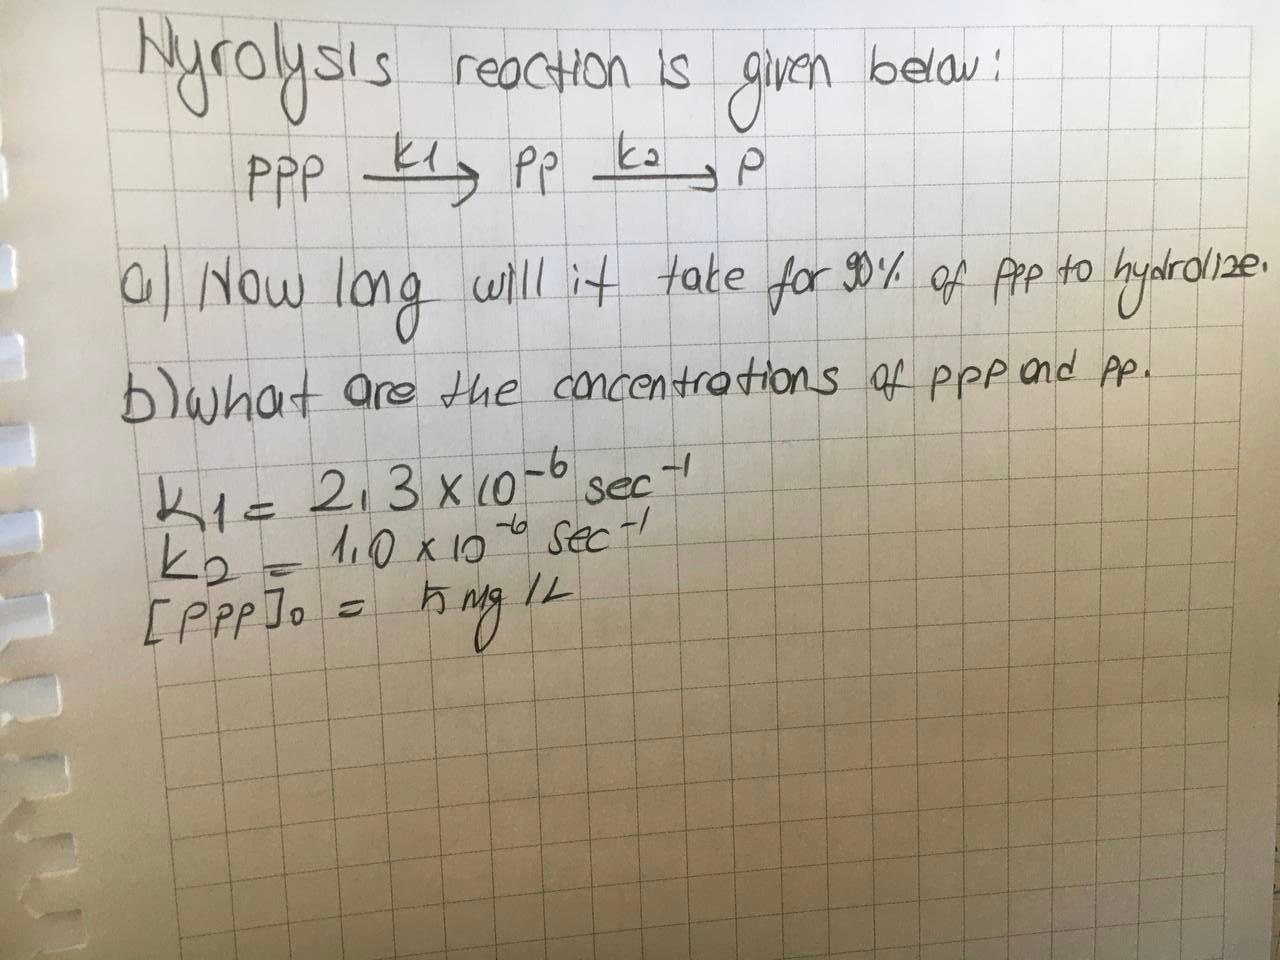 Hyrolysis reaction is given below:
PPP k1→ PP k2→ P
a) How long will it take for 90% of PPP to hydrolize.
b) what are the concentrations of PPP and PP.
K1 = 2,3 x 10⁻⁶ sec⁻¹
k2 = 1,0 x 10⁻⁶ sec⁻¹
[PPP]₀ = 5 mg /L